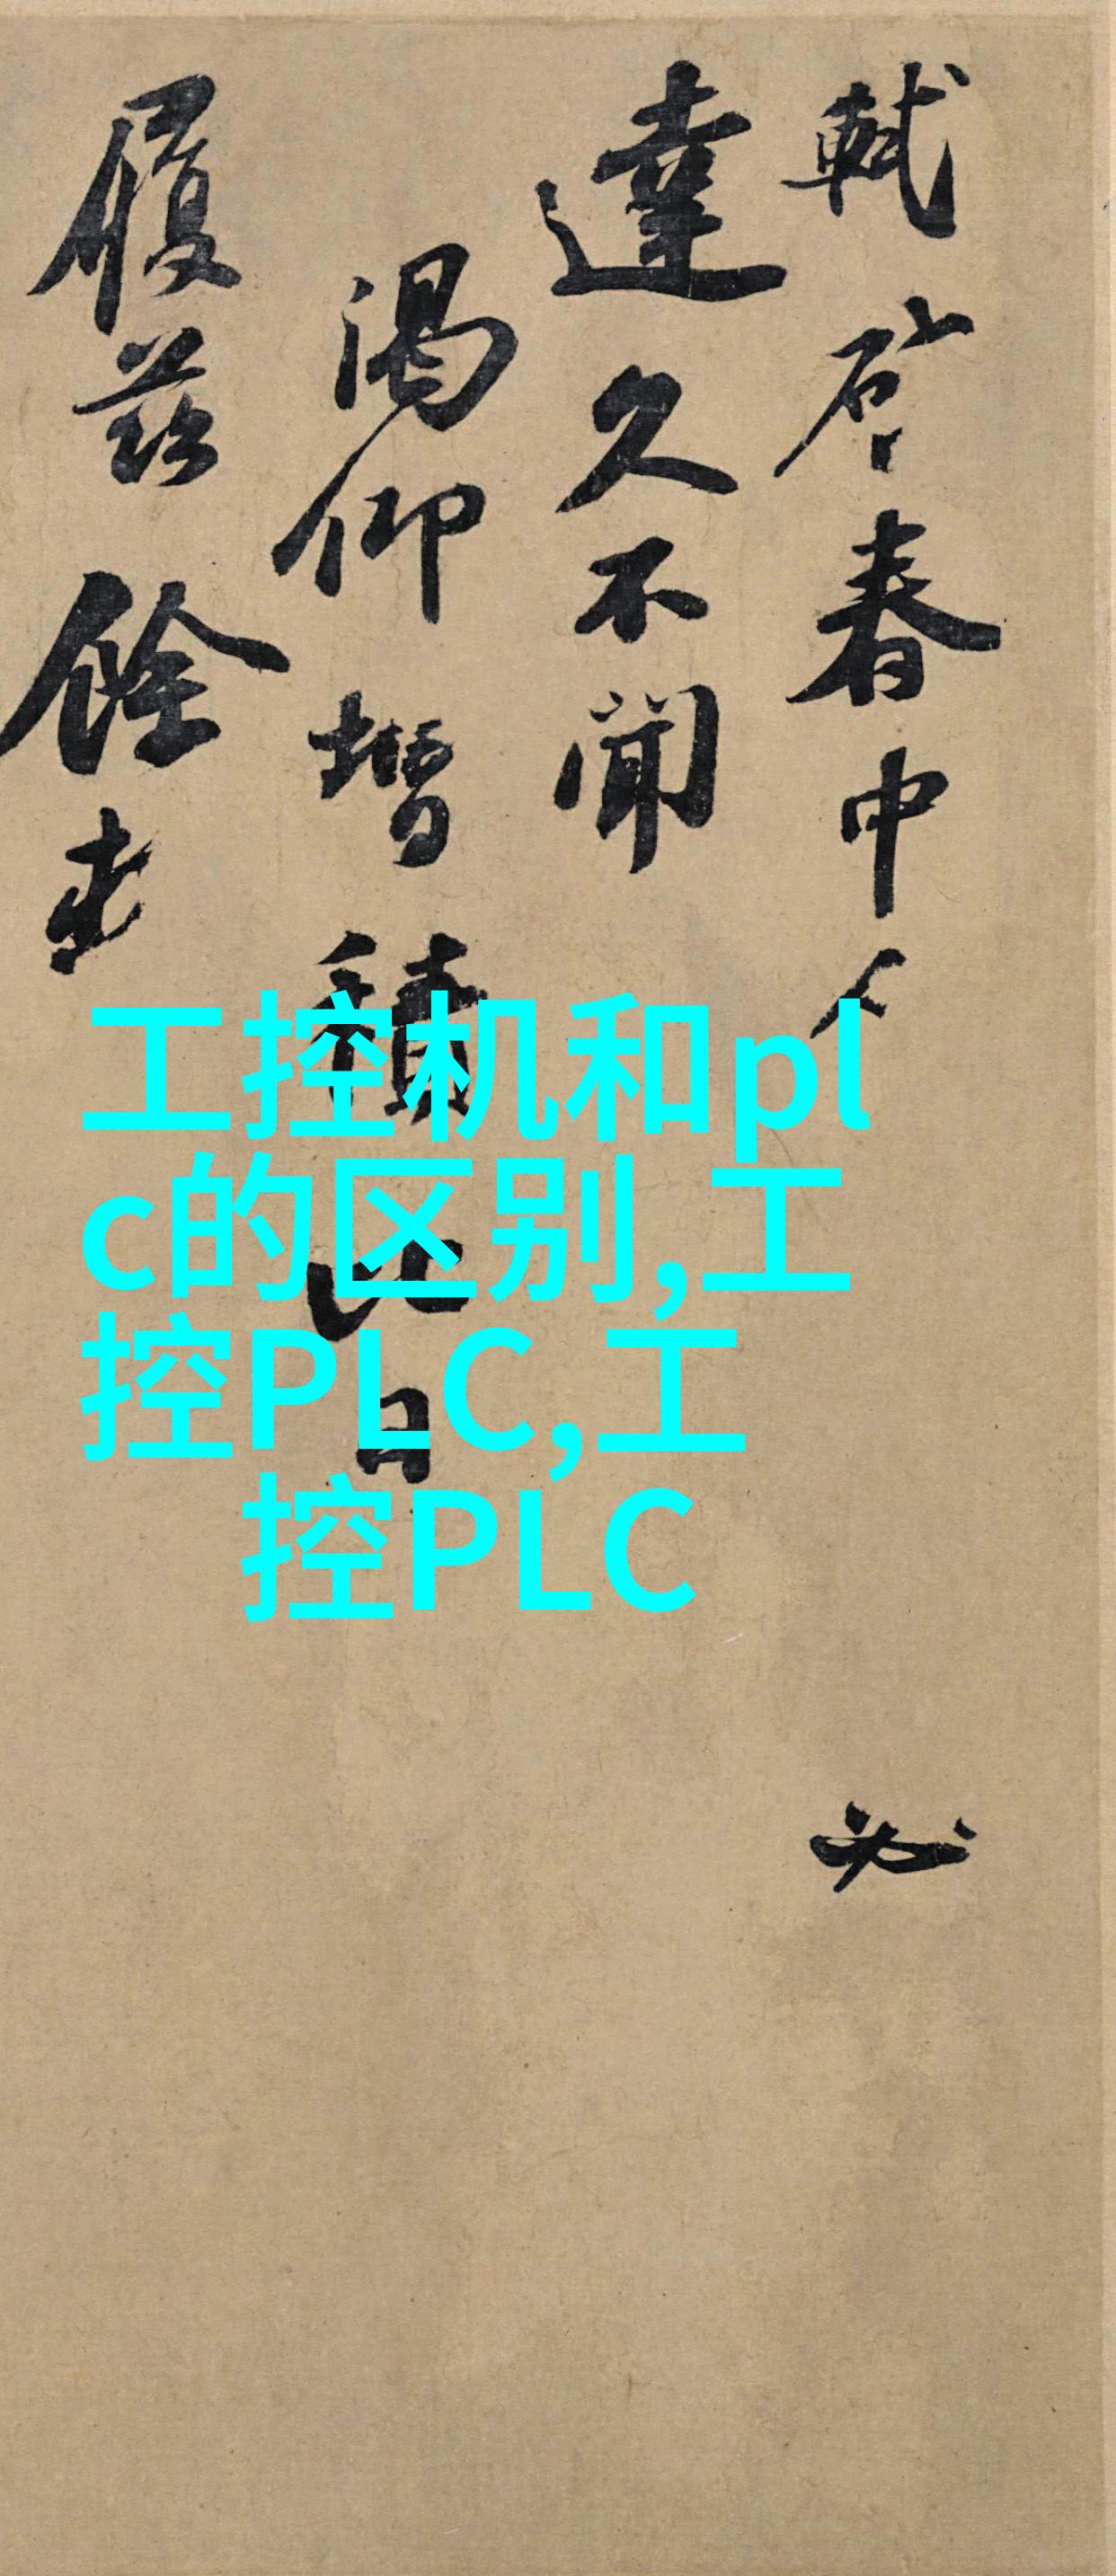 軾啓春中人必
達久不聞
渴仰增積比日
履茲餘
工控机和pl
c的区别,工
控PLC,工
控PLC